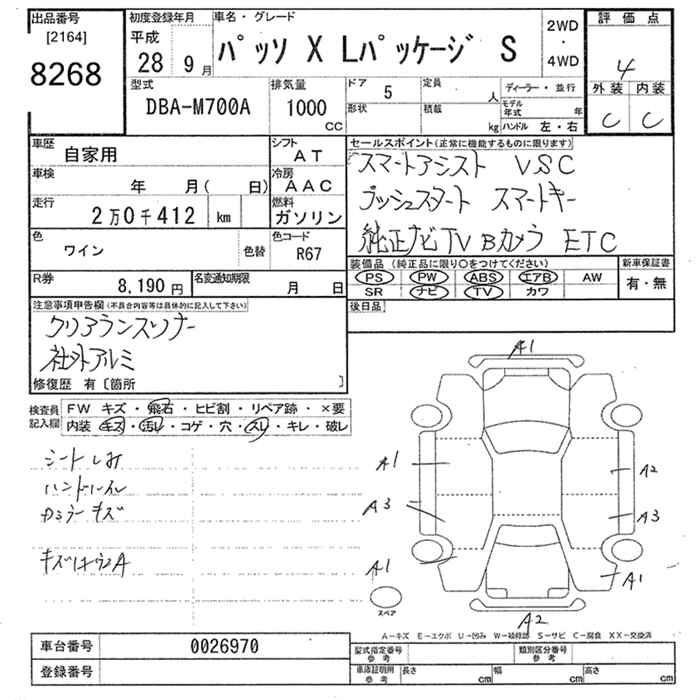 出品番号
[2164]
8268
初度登録年月
平成
28 9月
車名・グレード
パッソ X Lパッケージ S
2WD
・
4WD
評価点
4
外装 内装
C C
型式
DBA-M700A
排気量
1000
CC
ドア 5
定員 人
形状
積載 kg
ディーラー・並行
モデル年式 年
ハンドル 左・右
車歴
自家用
シフト
AT
車検
年 月( 日)
冷房
AAC
走行
2万0千412 km
燃料
ガソリン
色
ワイン
色替
色コード
R67
R券
8,190円
名変通知期限
月 日
セールスポイント(正常に機能するものに限ります)
スマートアシスト VSC
プッシュスタート スマートキー
純正ナビTV Bカメラ ETC
装備品(純正品に限り○をつけてください)
新車保証書
PS PW ABS エアB AW
SR ナビ TV カワ
有・無
後日品
注意事項申告欄(不具合内容等は具体的に記入して下さい)
クリアランスソナー
社外アルミ
修復歴 有〔箇所 〕
検査員
記入欄
FW キズ・飛石・ヒビ割・リペア跡・×要
内装 キズ・汚れ・コゲ・穴・スレ・キレ・破レ
シートしみ
ハンドルスレ
キズ
A1
A1
A2
A3
A3
A1
A1
A2
スペア
A-キズ E-エクボ U-凹み W-補修跡 S-サビ C-腐食 XX-交換済
車台番号
0026970
登録番号
型式指定番号
参考
類別区分番号
参考
車庫証明用
参考
長さ cm
幅 cm
高さ cm